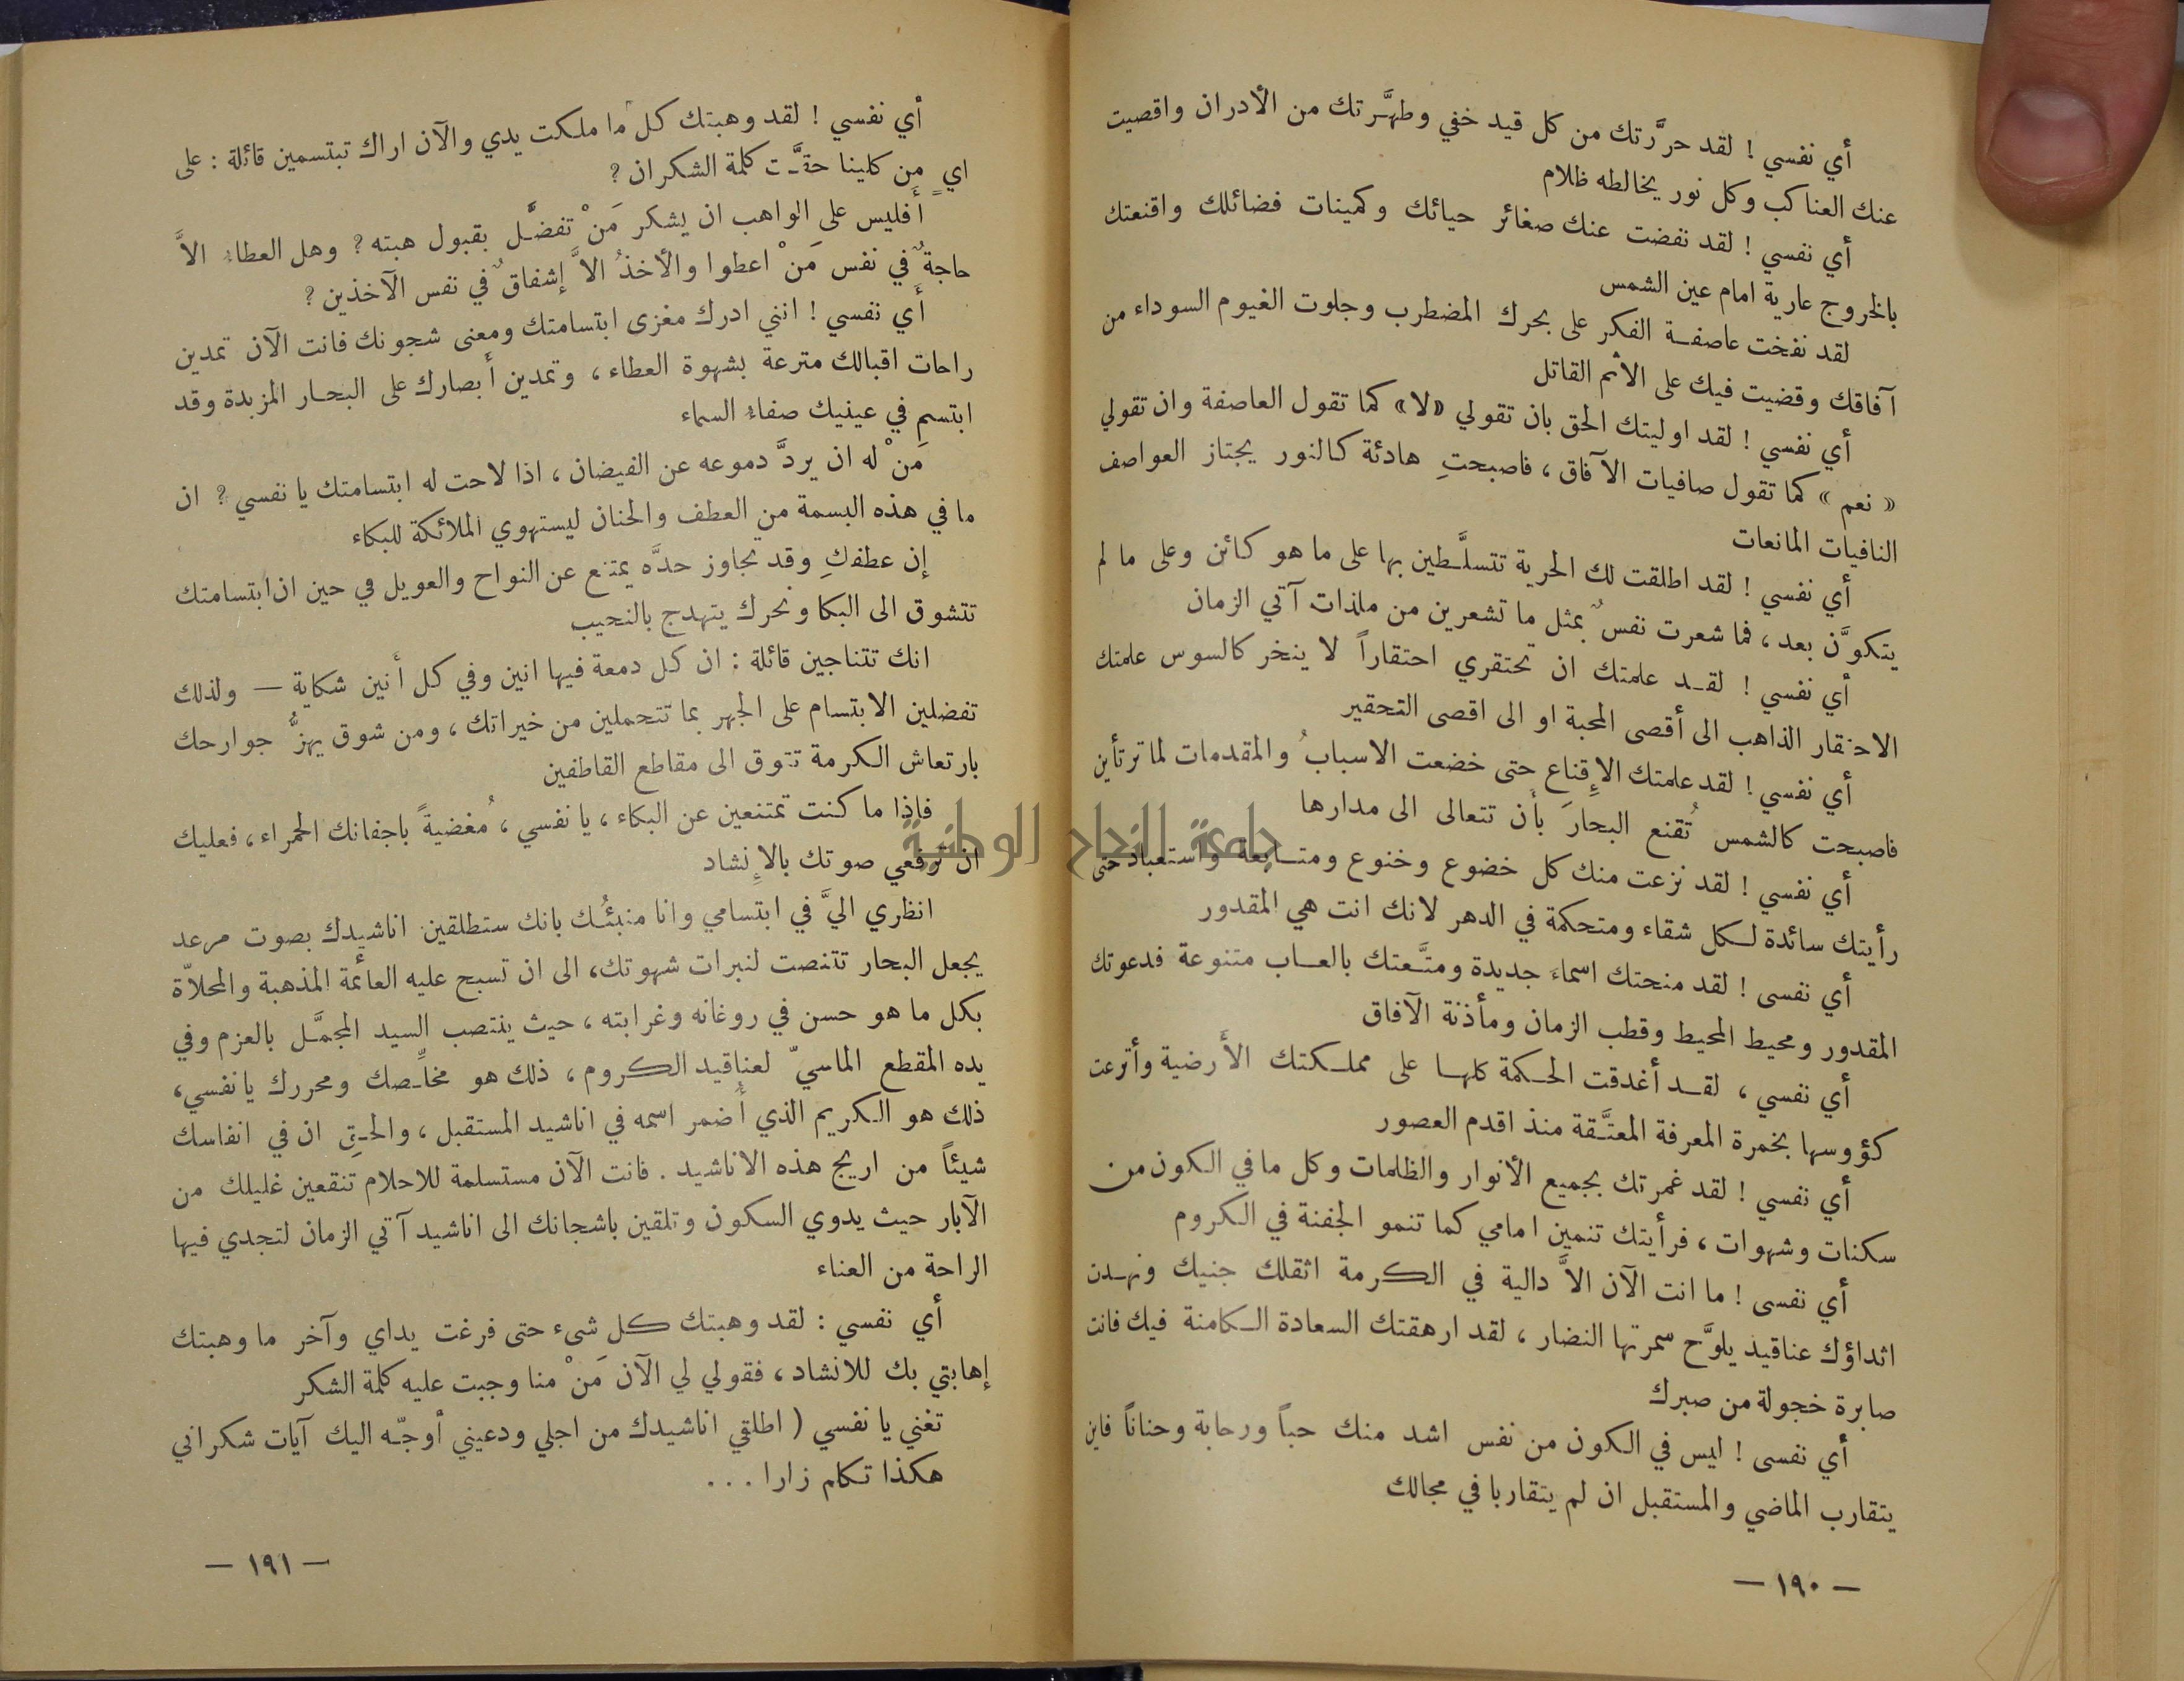 أي نفسي ! لقد حرَّرتك من كل قيد خفي وطهَّرتك من الأدران واقصيت
عنك العناكب وكل نور يخالطه ظلام
أي نفسي ! لقد نفضت عنك صغائر حيائك وكمينات فضائلك واقنعتك
بالخروج عارية امام عين الشمس
لقد نفخت عاصفة الفكر على بحرك المضطرب وجلوت الغيوم السوداء من
آفاقك وقضيت فيك على الأثم القاتل
أي نفسي ! لقد اوليتك الحق بان تقولي «لا» كما تقول العاصفة وان تقولي
« نعم » كما تقول صافيات الآفاق ، فاصبحتِ هادئة كالنور يجتاز العواصف
النافيات المانعات
أي نفسي ! لقد اطلقت لك الحرية تتسلَّطين بها على ما هو كائن وعلى ما لم
يتكوَّن بعد ، فما شعرت نفسٌ بمثل ما تشعرين من ملذات آتي الزمان
أي نفسي ! لقد علمتك ان تحتقري احتقاراً لا ينخر كالسوس علمتك
الاحتقار الذاهب الى أقصى المحبة او الى اقصى التحقير
أي نفسي ! لقد علمتك الإِقناع حتى خضعت الاسبابُ والمقدمات لما ترتأين
فاصبحت كالشمس تُقنع البحارَ بأن تتعالى الى مدارها
أي نفسي ! لقد نزعت منك كل خضوع وخنوع ومتابعة واستعباد حتى
رأيتك سائدة لكل شقاء ومتحكمة في الدهر لانك انت هي المقدور
أي نفسى ! لقد منحتك اسماءَ جديدة ومتَّعتك بالعاب متنوعة فدعوتك
المقدور ومحيط المحيط وقطب الزمان ومأذنة الآفاق
أي نفسي ، لقد أغدقت الحكمة كلها على مملكتك الأَرضية وأترعت
كؤوسها بخمرة المعرفة المعتَّقة منذ اقدم العصور
أي نفسي ! لقد غمرتك بجميع الأنوار والظلمات وكل ما في الكون من
سكنات وشهوات ، فرأيتك تنمين امامي كما تنمو الجفنة في الكروم
أي نفسى ! ما انت الآن الاَّ دالية في الكرمة اثقلك جنيك ونهدت
اثداؤك عناقيد يلوَّح سمرتها النضار ، لقد ارهقتك السعادة الكامنة فيك فانت
صابرة خجولة من صبرك
أي نفسى ! ليس في الكون من نفس اشد منك حباً ورحابة وحناناً فاين
يتقارب الماضي والمستقبل ان لم يتقاربا في مجالك
— ١٩٠ —
أي نفسي ! لقد وهبتك كل ما ملكت يدي والآن اراك تبتسمين قائلة : على
ايٍ من كلينا حقَّت كلمة الشكران ?
أَفليس على الواهب ان يشكر مَنْ تفضَّل بقبول هبته ? وهل العطاءُ الاَّ
حاجةٌ في نفس مَنْ اعطوا والأخذُ الاَّ إشفاقٌ في نفس الآخذين ?
أَي نفسي ! انني ادرك مغزى ابتسامتك ومعنى شجونك فانت الآن تمدين
راحات اقبالك مترعة بشهوة العطاء ، وتمدين أَبصارك على البحار المزبدة وقد
ابتسم في عينيك صفاءُ السماء
مَنْ له ان يردَّ دموعه عن الفيضان ، اذا لاحت له ابتسامتك يا نفسي ? ان
ما في هذه البسمة من العطف والحنان ليستهوي الملائكة للبكاء
إن عطفكِ وقد تجاوز حدَّه يمتنع عن النواح والعويل في حين ان ابتسامتك
تتشوق الى البكا ونحرك يتهدج بالنحيب
انك تتناجين قائلة : ان كل دمعة فيها انين وفي كل أَنين شكاية — ولذلك
تفضلين الابتسام على الجهر بما تتحملين من خيراتك ، ومن شوق يهزُّ جوارحك
بارتعاش الكرمة تتوق الى مقاطع القاطفين
فإذا ما كنت تمتنعين عن البكاء ، يا نفسي ، مُغضيةً باجفانك الحمراء ، فعليك
ان ترفعي صوتك بالإِنشاد
انظري اليَّ في ابتسامي وانا منبئُك بانك ستطلقين اناشيدك بصوت مرعد
يجعل البحار تتنصت لنبرات شهوتك ، الى ان تسبح عليه العائمة المذهبة والمحلاّة
بكل ما هو حسن في روغانه وغرابته ، حيث ينتصب السيد المجمَّل بالعزم وفي
يده المقطع الماسيّ لعناقيد الكروم ، ذلك هو مخلِّصك ومحررك يا نفسي ،
ذلك هو الكريم الذي أُضمر اسمه في اناشيد المستقبل ، والحق ان في انفاسك
شيئاً من اريج هذه الاناشيد . فانت الآن مستسلمة للاحلام تنقعين غليلك من
الآبار حيث يدوي السكون وتلقين باشجانك الى اناشيد آتي الزمان لتجدي فيها
الراحة من العناء
أي نفسي : لقد وهبتك كل شىء حتى فرغت يداي وآخر ما وهبتك
إهابتي بك للانشاد ، فقولي لي الآن مَنْ منا وجبت عليه كلمة الشكر
تغني يا نفسي ( اطلقي اناشيدك من اجلي ودعيني أوجّه اليك آيات شكراني
هكذا تكلم زارا . . .
— ١٩١ —
جامعة النجاح الوطنية